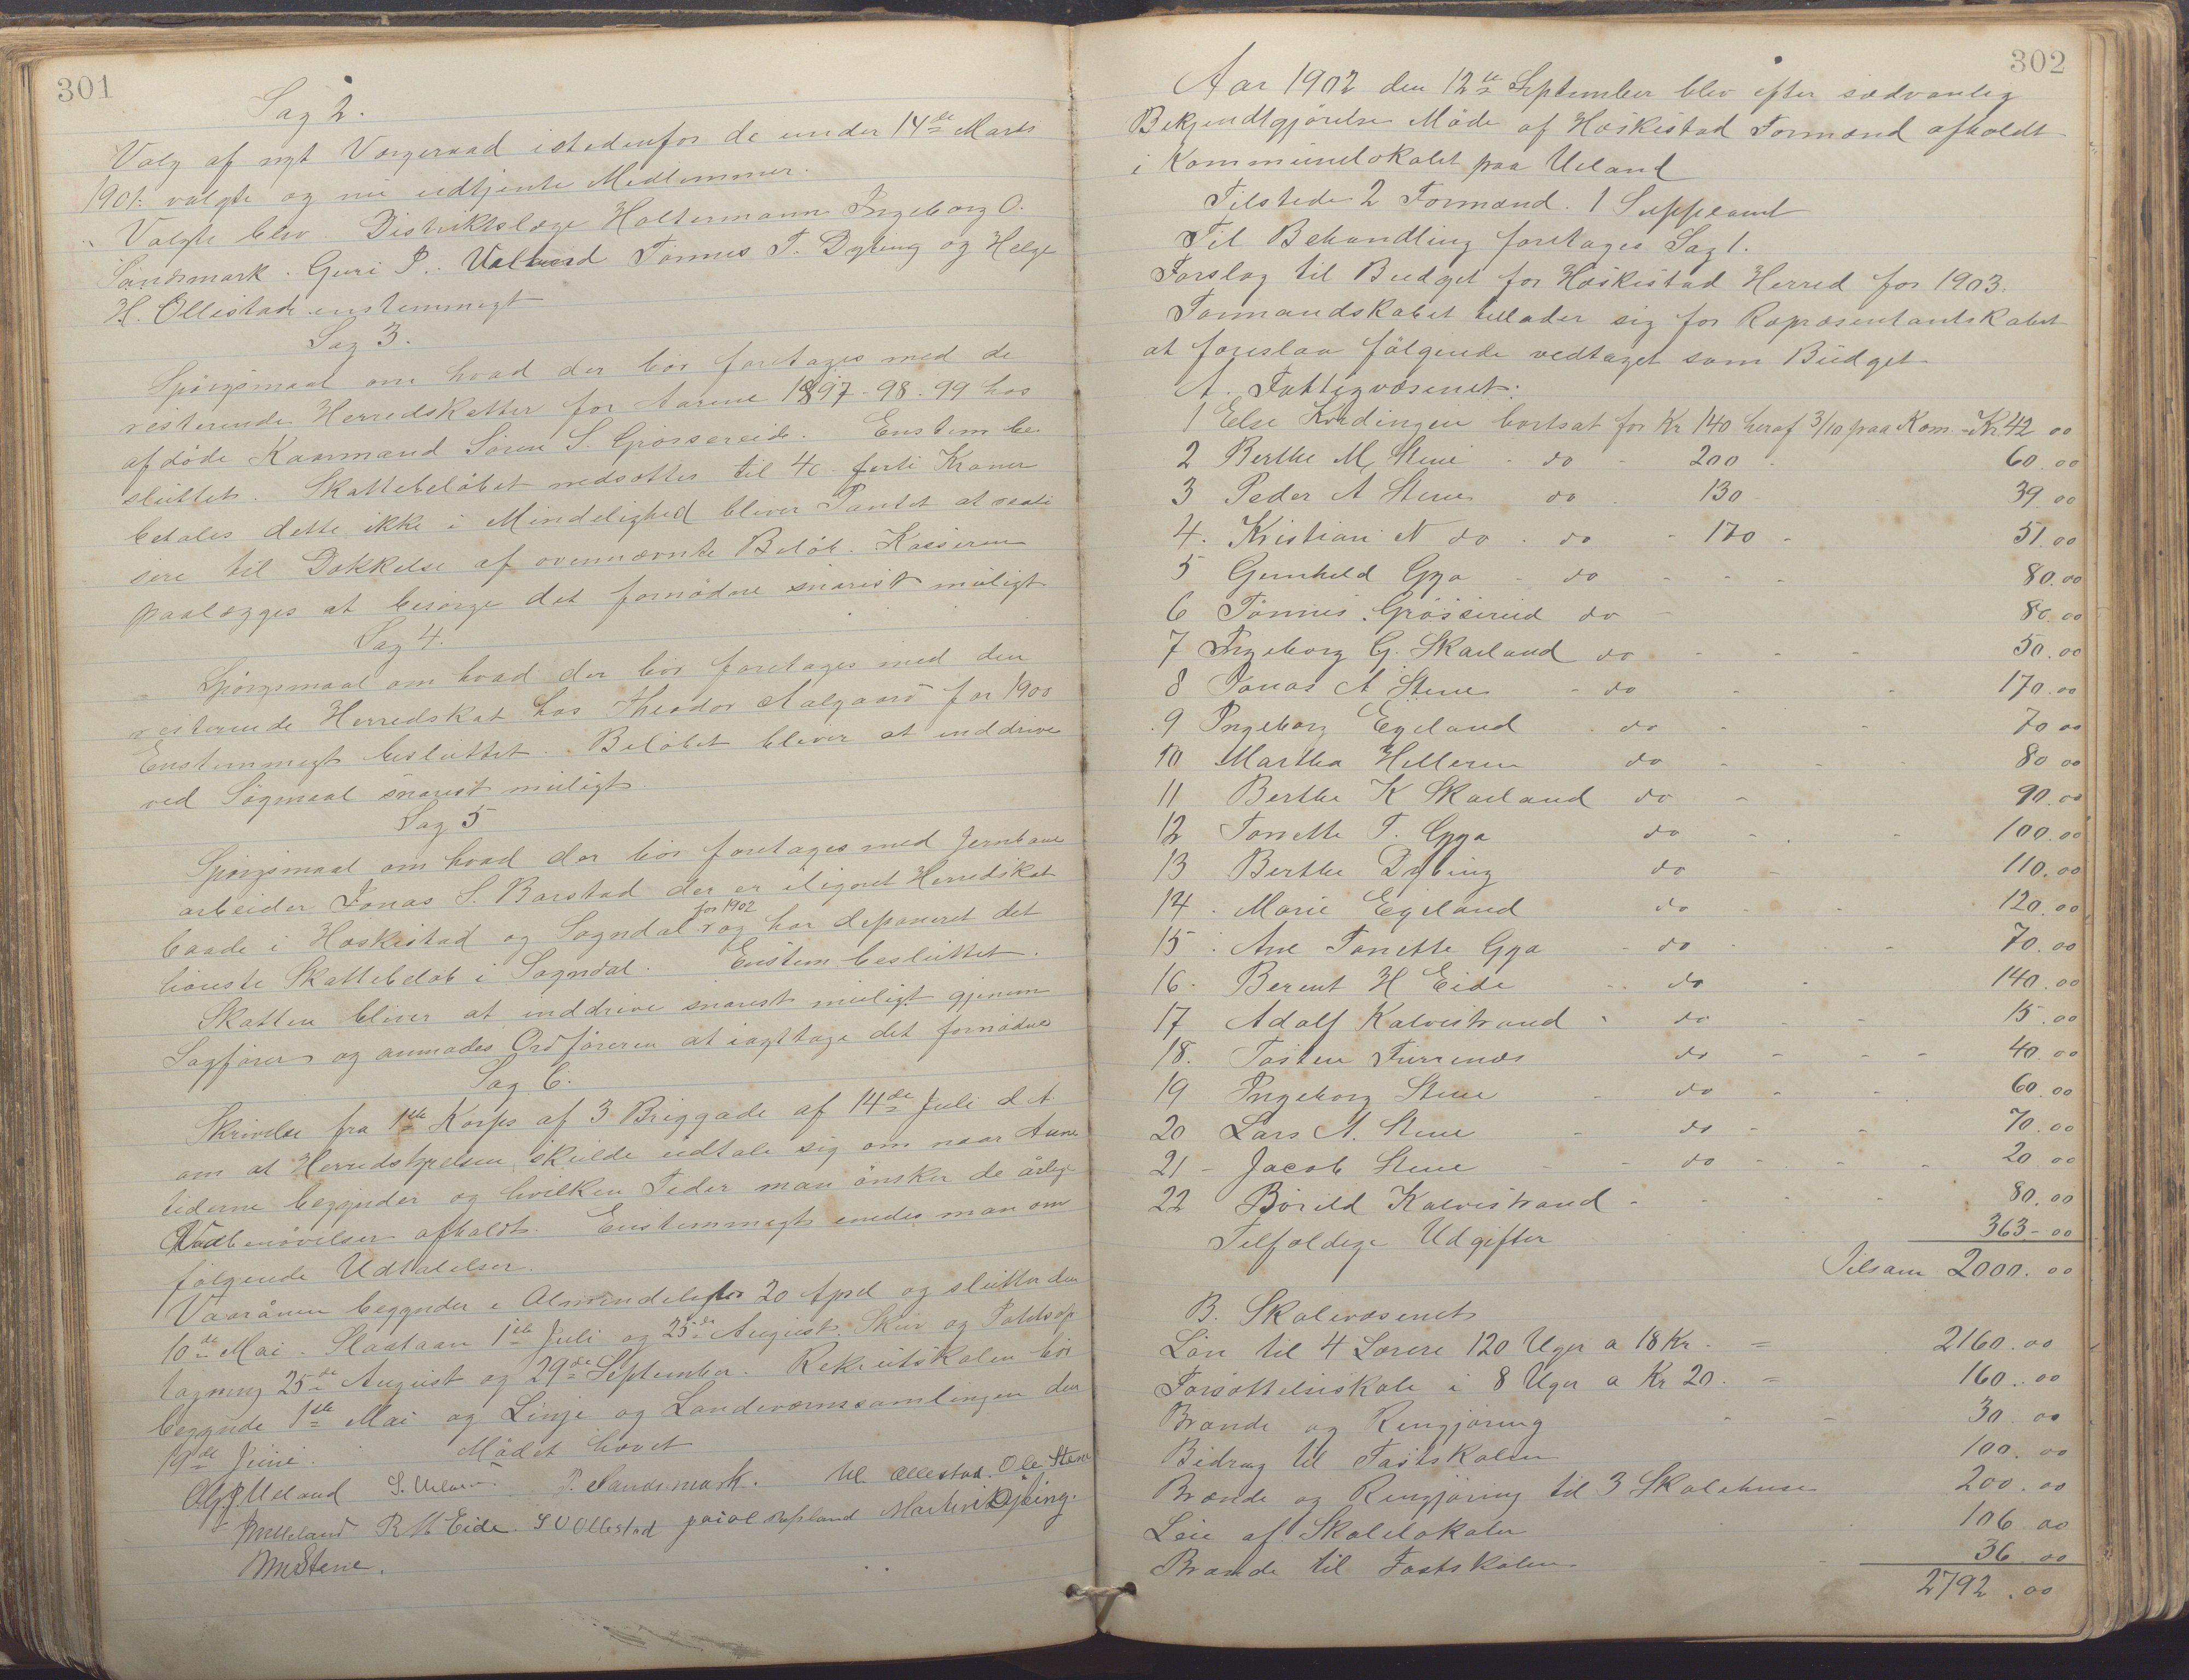 301
Sag 2.
Valg af nytVærgeraad istedenfor de under 14de Marts
1901. valgte og nu udtjente Medlemmer.
Valgte blev. Distriktslæge Holtermann Ingeborg O.
Sandsmark. Guri P. Tønnes T. Dybing og Helge
H. Ollestad enstemmigt
Sag 3.
Spørgsmaal om hvad der bør foretages med de
resterende Herredskatter for Aarene 1897-98.99 hos
afdøde Kaarmand Søren S. Grøssereid. Enstem be-
sluttet. Skattebeløbet nedsættes til 40 førti Kroner
betales dette ikke i Mindelighed bliver Pantet at reali
sere til Dækkelse af ovennævnte Beløb. Kasseren
paalægges at besørge det fornødne snarest muligt
Sag 4.
Spørgsmaal om hvad der bør foretages med den
resterende Herredskat hos Theodor Aalgaard for 1900
Enstemmigt besluttet. Beløbet bliver at inddrive
ved Søgmaal snarest muligt.
Sag 5
Spørgsmaal om hvad der bør foretages med Jernbane
arbeider Jonas S. Barstad der er ilignet Herredskat
baade i Heskestad og Sogndal for 1902 og har deponeret det
høieste Skattebeløb i Sogndal. Enstem. besluttet.
Skatten bliver at inddrive snarest muligt gjennem
Sagfører og anmodes Ordføreren at iagttage det fornødne
Sag 6.
Skrivelse fra 1ste Korps af 3 Briggade af 14de Juli d. A
om at Herredstyrelsen skulde udtale sig om naar Aane
tiderne begynder og hvilken Tider man ønsker de årlige
Vaabenøvelser afholdt. Enstemmigt enedes man om
følgende Udtalelser.
Vaaraanen begynder i Almindelighed 20 April og slutter den
10de Mai. Slaataan 1ste Juli og 25de August. Skur og Potetsop
tagning 25de August og 29de September. Rekrutskolen bør
begynde 1ste Mai og Linje og Landeværnssamlingen den
19de Juni. Mødet hævet
S. Ueland T. Sandsmark. Ollestad. Ole Stene
R M Eide. S V Ollestad Martin Dybing.
Stene.
302
Aar 1902 den 12te September blev efter sædvanlig
Bekjendtgjørelse Møde af Heskestad Formænd afholdt
i Kommunelokalet paa Ueland
Tilstede 2 Formænd. 1 Suppleant
Til Behandling foretages Sag 1.
Forslag til Budget for Heskestad Herred for 1903.
Formandskabet tillader sig for Repræsentantskabet
at foreslaa følgende vedtaget som Budget
A. Fattigvæsenet.
1 Else Kvedingen bortsat for Kr 140 heraf 3/10 paa Kom. - Kr. 42 00
2 Berthe M. Stene - do - 200 - 60.00
3 Peder A Stene do - 130 39.00
4. Kristian N do - do - 170 - 51.00
5 Gunhild Gya - do - - - 80.00
6 Tønnes Grøssereid do - 80.00
7 Ingeborg G. Skaeland do - - - 50.00
8 Jonas A Stene - do - - 170.00
9 Ingeborg Egeland - do - - 70 00
10 Martha Helleren do - - - 80 00
11 Berthe K Skaeland do - 90.00
12 Tonette T. Gya do - - - 100.00
13 Berthe Dybing do - 110.00
14. Marie Egeland do - - 120.00
15. Ane Tonette Gya - do - - - 70.00
16. Berent H Eide - do - 140.00
17 Adolf Kalvestrand - do - - 15.00
18. Tosten Furrenes do - - - 40.00
19 Ingeborg Stene - do - - - 60.00
20 Lars A. Stene - do - - 70.00
21 - Jacob Stene - - do - - - 20.00
22 Borild Kalvestrand - - - - 80.00
Tilfældige Udgifter 363-00
Tilsam 2000.00
B. Skolevæsenet
Løn til 4 Lærere 120 Uger a 18 Kr. = 2160.00
Forsættelsesskole i 8 Uger a Kr 20. = 160.00
Brænde og Rengjøring - - 30.00
Bidrag til Fastskolen 100.00
Brænde og Rengjøring til 3 Skolehuse 200.00
Leie af Skolelokaler 106 00
Brænde til Fastskolen - 36 00
2792.00